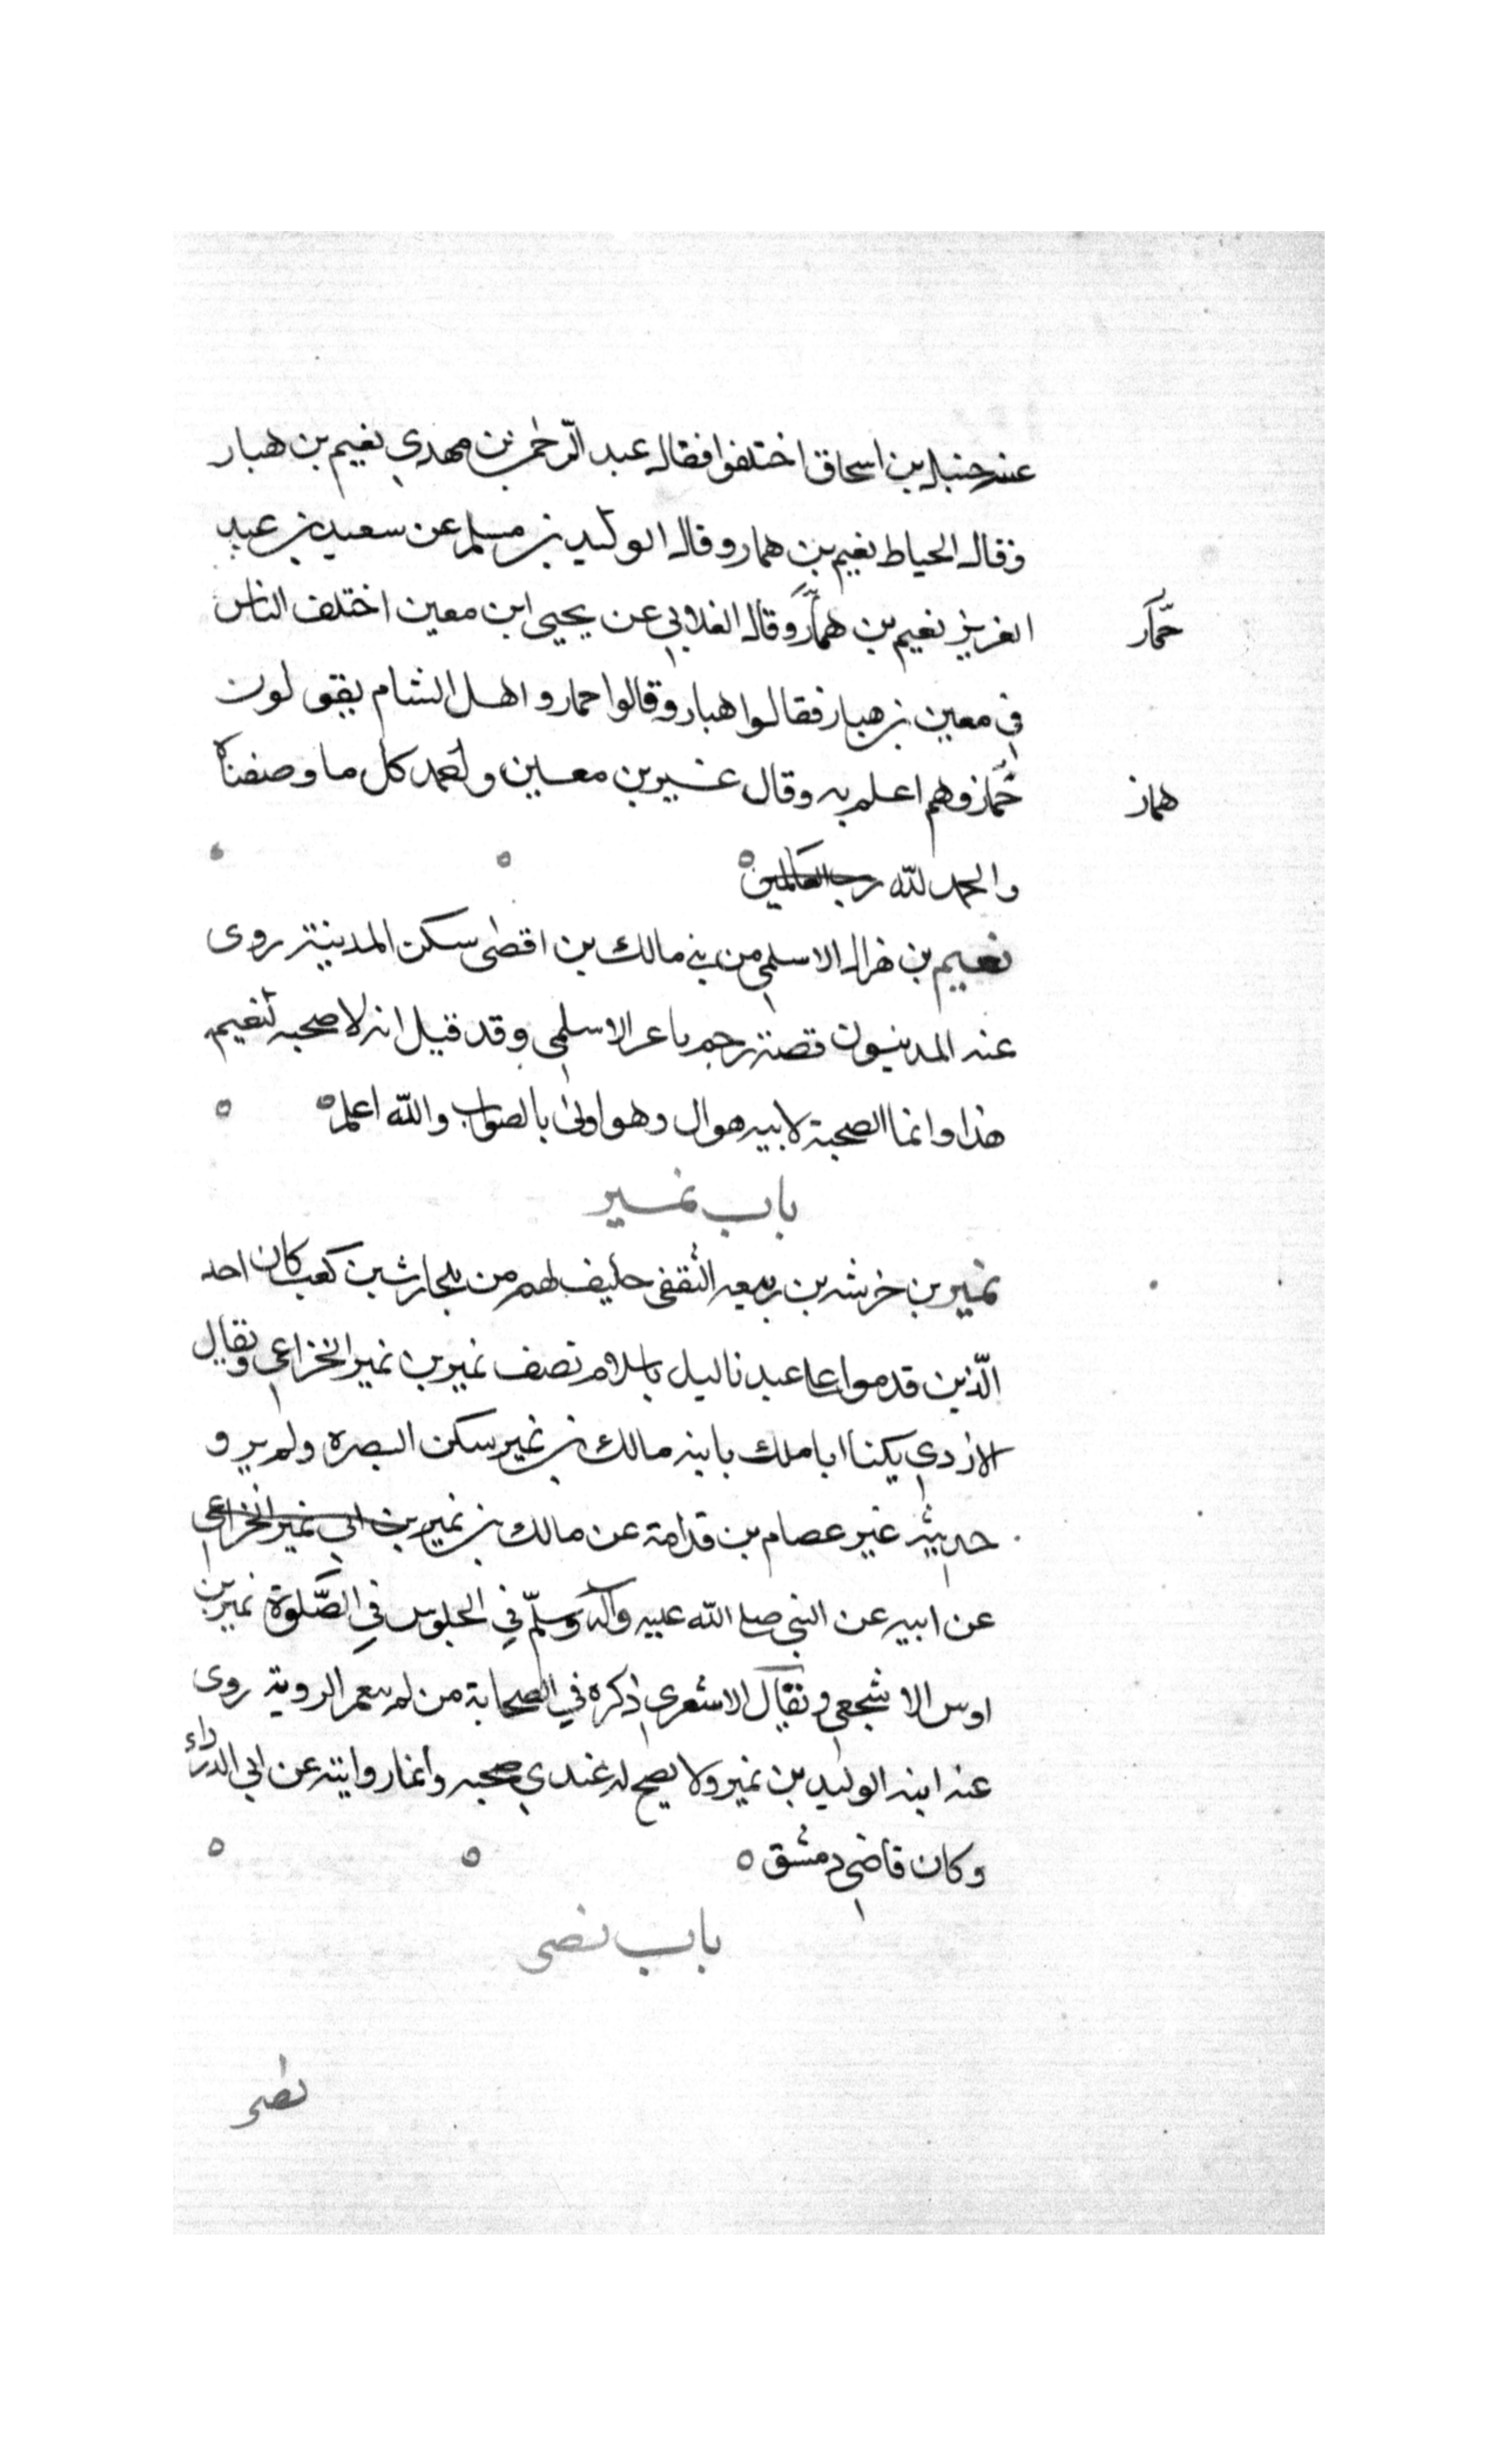 عنه حنبل بن اسحاق اختلفوا فقال عبد الرّحمن بن مهدي نعيم بن هبار
وقال الحياط نعيم بن همار وقال الوليد بن مسلم عن سعيد بن عبد
العزيز نعيم بن همّار وقال الغلابي عن يحيى ابن معين اختلف الناس
حمّار
في معين بن هبار فقالوا هبار وقالوا حمار واهل الشام يقولون
خمّار وهم اعلم به وقال غير بن معين ولعمد كل ما وصفناه
هماز
والحمد لله رب العالمين
نعيم بن هزال الاسلمي من بني مالك بن اقصى سكن المدينة روى
عنه المدنيون قصة رجم ماعز الاسلمي وقد قيل انه لا صحبه لنعيم
هذا وانما الصحبة لابيه هوال وهو اولى بالصواب والله اعلم
باب نمير
نمير بن خرشه بن ربيعه الثقفي حليف لهم من بلحارث بن كعب كان احد
الّذين قدموا عا عبد ناليل باسلام نصف نمير بن نمير الخزاعي ويقال
الازدي يكنا ابا ملك بابنه مالك بن نمير سكن البصره ولم يرو
حديثه غير عصام بن قدامة عن مالك بن نمير بن ابي نمير الخزاعي
عن ابيه عن النبي صلى الله عليه وآله وسلّم في الجلوس في الصّلوة نمير بن
اوس الاشجعي ويقال الاشعري ذكره في الصحابة من لم يعم الروية روى
عنه ابنه الوليد بن نمير ولا يصح له عندي صحبه وانما روايته عن ابي الدرداء
وكان قاضي دمشق
باب نصى
نصر